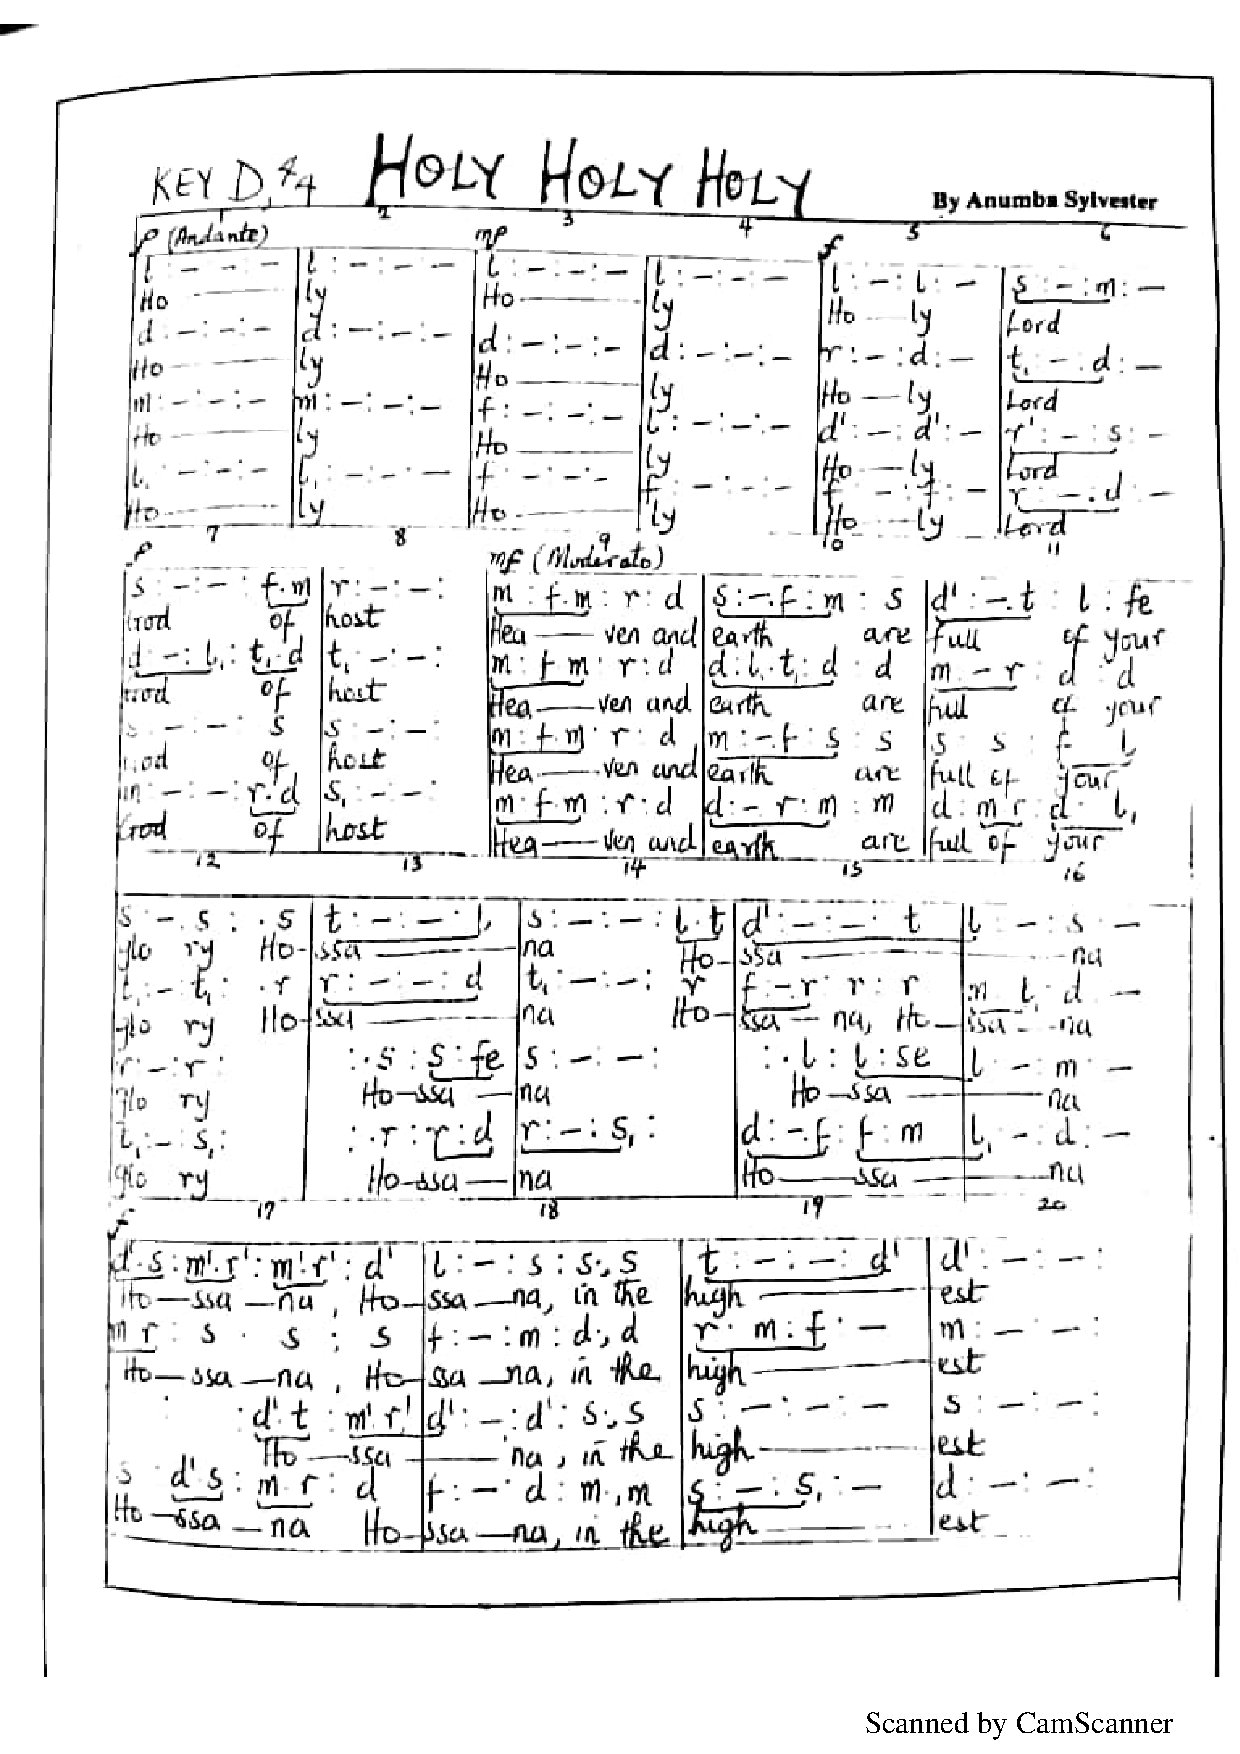 KEY D, 4/4 HOLY HOLY HOLY
By Anumba Sylvester
2 3 4 5 6
p (Andante) mp f
l : – : – : – | l : – : – : – | l : – : – : – | l : – : – : – | l : – : l : – | s : – : m : –
Ho ly Ho ly Ho ly Lord
d : – : – : – | d : – : – : – | d : – : – : – | d : – : – : – | r : – : d : – | t, : – : d : –
Ho ly Ho ly Ho ly Lord
m : – : – : – | m : – : – : – | f : – : – : – | l : – : – : – | d' : – : d' : – | r' : – : s : –
Ho ly Ho ly Ho ly Lord
l, : – : – : – | l, : – : – : – | f : – : – : – | f : – : – : – | f : – : f : – | r : – . d : –
Ho ly Ho ly Ho ly Lord
7 8 9 10 11
p mf (Moderato)
s : – : – : f.m | r : – : – : | m : f.m : r : d | s : – . f : m : s | d' : – . t : l : fe
God of host Hea ven and earth are full of your
d – : l, : t,.d | t, : – : – : | m : f m : r : d | d : l, . t, : d : d | m – r : d : d
God of host Hea ven and earth are full of your
s : – : – : s | s : – : – : | m : f.m : r : d | m : – . f : s : s | s : s : f : l
God of host Hea ven and earth are full of your
m : – : – : r.d | s, : – : – : | m : f.m : r : d | d : – r : m : m | d : m r : d : l,
God of host Hea ven and earth are full of your
12 13 14 15 16
s : – . s : . s | t : – : – : l, | s : – : – : l.t | d' : – : – : t | l : – : s : –
glo ry Ho-ssa na Ho-ssa na
t, : – t, : . r | r : – : – : d | t, : – : – : r | f – r : r : r | m l, : d : –
glo ry Ho-ssa na Ho-ssa – na, Ho-ssa – na
r : – : r : | : . s : s : fe | s : – : – : | : . l : l : se | l : – : m : –
glo ry Ho-ssa – na Ho-ssa na
t, : – : s, : | : . r : r : d | r : – : s, : | d : – . f : f : m | l, : – : d : –
glo ry Ho-ssa – na Ho ssa na
17 18 19 20
f
d'.s : m'.r' : m'.r' : d' | l : – : s : s ., s | t : – : – : d' | d' : – : – :
Ho – ssa – na, Ho-ssa – na, in the high est
m r : s : s : s | f : – : m : d ., d | r : m : f : – | m : – : – :
Ho – ssa – na, Ho-ssa – na, in the high est
: d' t : m' r' | d' : – : d' : s ., s | s : – : – : – | s : – : – :
Ho – ssa na, in the high est
s : d' s : m r : d | f : – : d : m ., m | s : – : s, : – | d : – : – :
Ho – ssa – na Ho-ssa – na, in the high est
Scanned by CamScanner